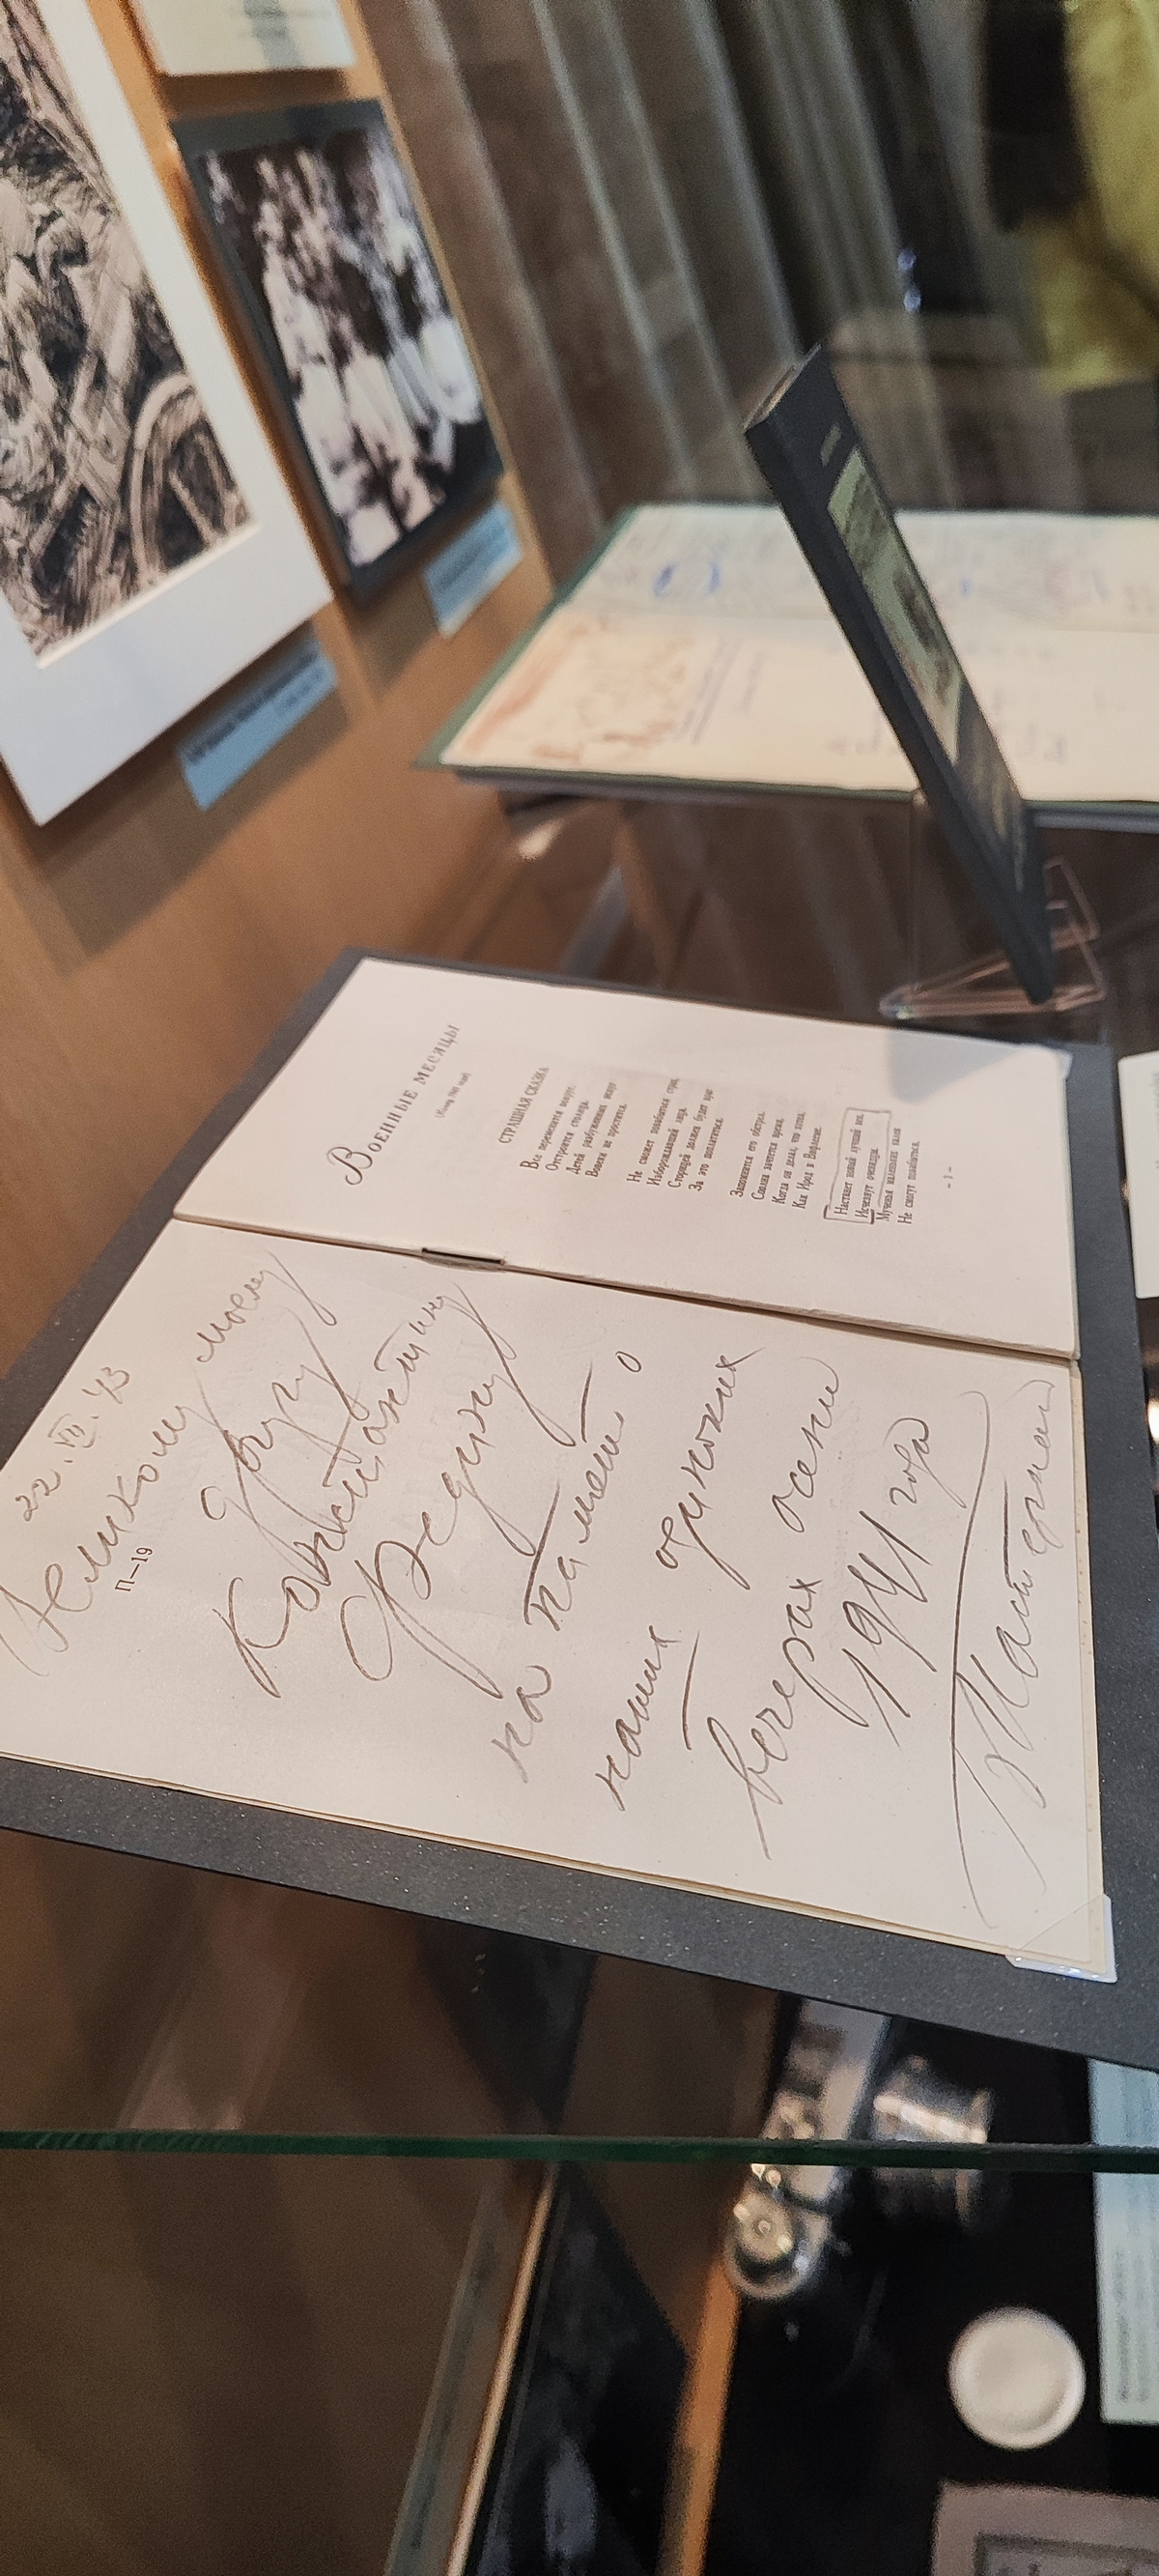 22.VII.43
Великому моему
П—19
другу
Константину
Федину
на память о
наших одиноких
вечерах осени
1941 года
БПастернак
ВОЕННЫЕ МЕСЯЦЫ
(Конец 1941 года)
СТРАШНАЯ СКАЗКА
Все переменится вокруг.
Отстроится столица.
Детей разбуженных испуг
Вовеки не простится.
Не сможет позабыться страх,
Изборождавший лица.
Сторицей должен будет враг
За это поплатиться.
Запомнится его обстрел.
Сполна зачтется время,
Когда он делал, что хотел,
Как Ирод в Вифлееме.
Настанет новый лучший век.
Исчезнут очевидцы.
Мученья маленьких калек
Не смогут позабыться.